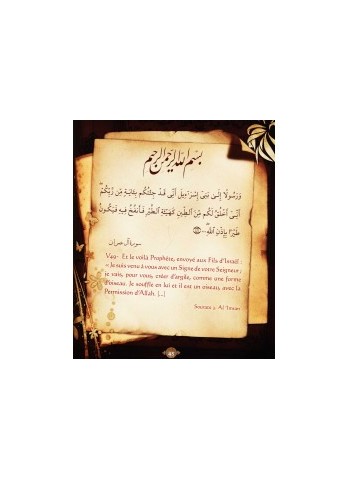 بسم الله الرحمن الرحيم
وَرَسُولًا إِلَىٰ بَنِي إِسْرَٰٓءِيلَ أَنِّي قَدْ جِئْتُكُم بِـَٔايَةٍ مِّن رَّبِّكُمْ
أَنِّيٓ أَخْلُقُ لَكُم مِّنَ ٱلطِّينِ كَهَيْـَٔةِ ٱلطَّيْرِ فَأَنفُخُ فِيهِ فَيَكُونُ
طَيْرًۢا بِإِذْنِ ٱللَّهِ ...
سورة آل عمران
V49- Et le voilà Prophète, envoyé aux Fils d'Israël :
« Je suis venu à vous avec un Signe de votre Seigneur ;
je vais, pour vous, créer d'argile, comme une forme
d'oiseau. Je souffle en lui et il est un oiseau, avec la
Permission d'Allah. [...]
Sourate 3: Al 'Imran
45